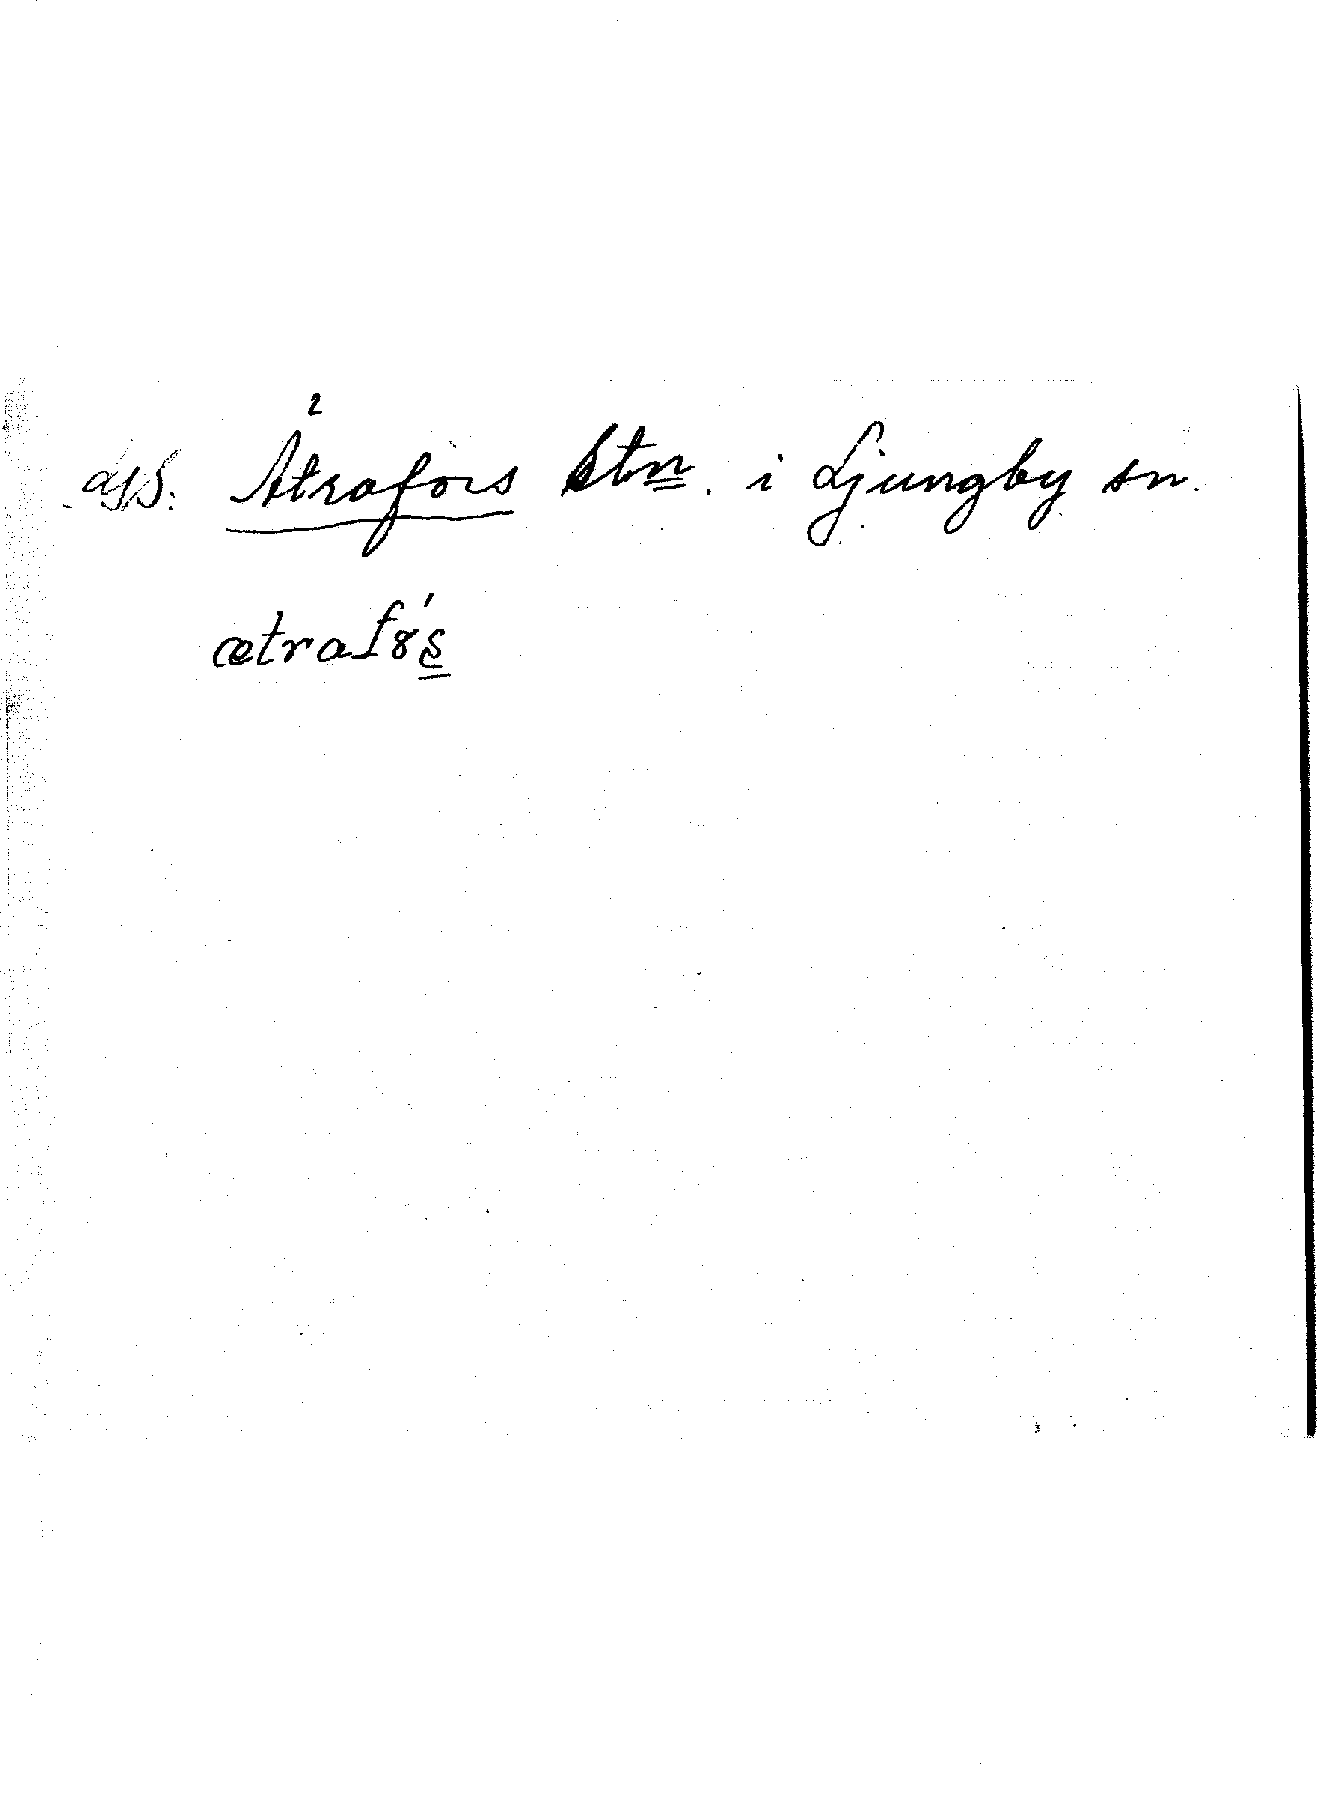 Ätrafors stn. i Ljungby sn.
ætrafɤ́s